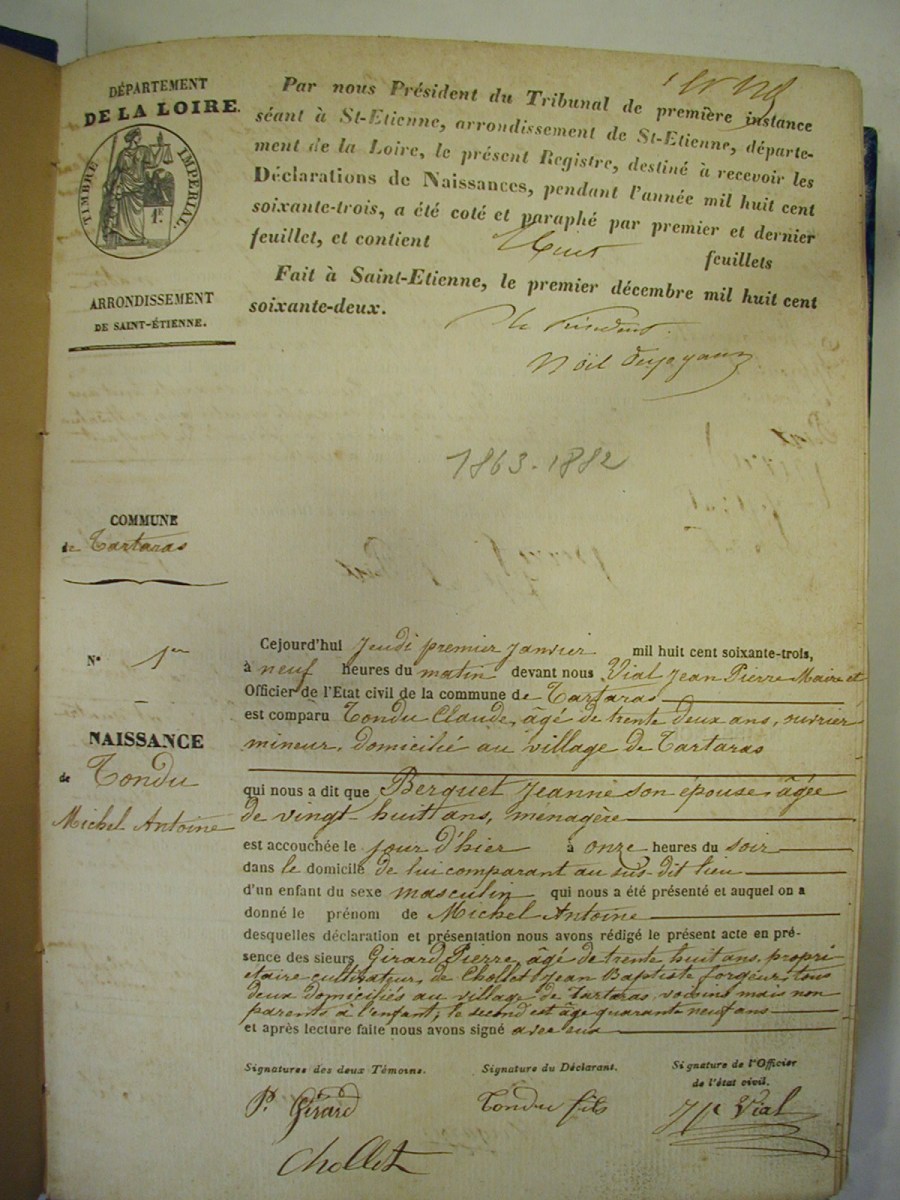 DÉPARTEMENT
DE LA LOIRE.
TIMBRE IMPÉRIAL.
1F.
ARRONDISSEMENT
DE SAINT-ÉTIENNE.
Par nous Président du Tribunal de première instance
séant à St-Etienne, arrondissement de St-Etienne, départe-
ment de la Loire, le présent Registre, destiné à recevoir les
Déclarations de Naissances, pendant l'année mil huit cent
soixante-trois, a été coté et paraphé par premier et dernier
feuillet, et contient feuillets
Fait à Saint-Etienne, le premier décembre mil huit cent
soixante-deux.
Le Président.
Noël
1863-1882
COMMUNE
de Tartaras
N° 1er
NAISSANCE
de Tondu
Michel Antoine
Cejourd'hui Jeudi premier Janvier mil huit cent soixante-trois,
à neuf heures du matin devant nous Vial Jean Pierre Maire et
Officier de l'Etat civil de la commune de Tartaras
est comparu Tondu Claude, âgé de trente deux ans, ouvrier
mineur, domicilié au village de Tartaras
qui nous a dit que Berquet Jeanne son épouse, âgée
de vingt-huit ans, menagère
est accouchée le jour d'hier à onze heures du soir
dans le domicile de lui comparant au sus-dit lieu
d'un enfant du sexe masculin qui nous a été présenté et auquel on a
donné le prénom de Michel Antoine
desquelles déclaration et présentation nous avons rédigé le présent acte en pré-
sence des sieurs Girard Pierre, âgé de trente huit ans, propri-
étaire cultivateur, de Chollet Jean Baptiste forgeur, tous
deux domiciliés au village de Tartaras, voisins mais non
parents à l'enfant, le second est âgé quarante neuf ans
et après lecture faite nous avons signé avec eux
Signatures des deux Témoins.
Signature du Déclarant.
Signature de l'Officier
de l'état civil.
P. Girard
Tondu fils
JP Vial
Chollet